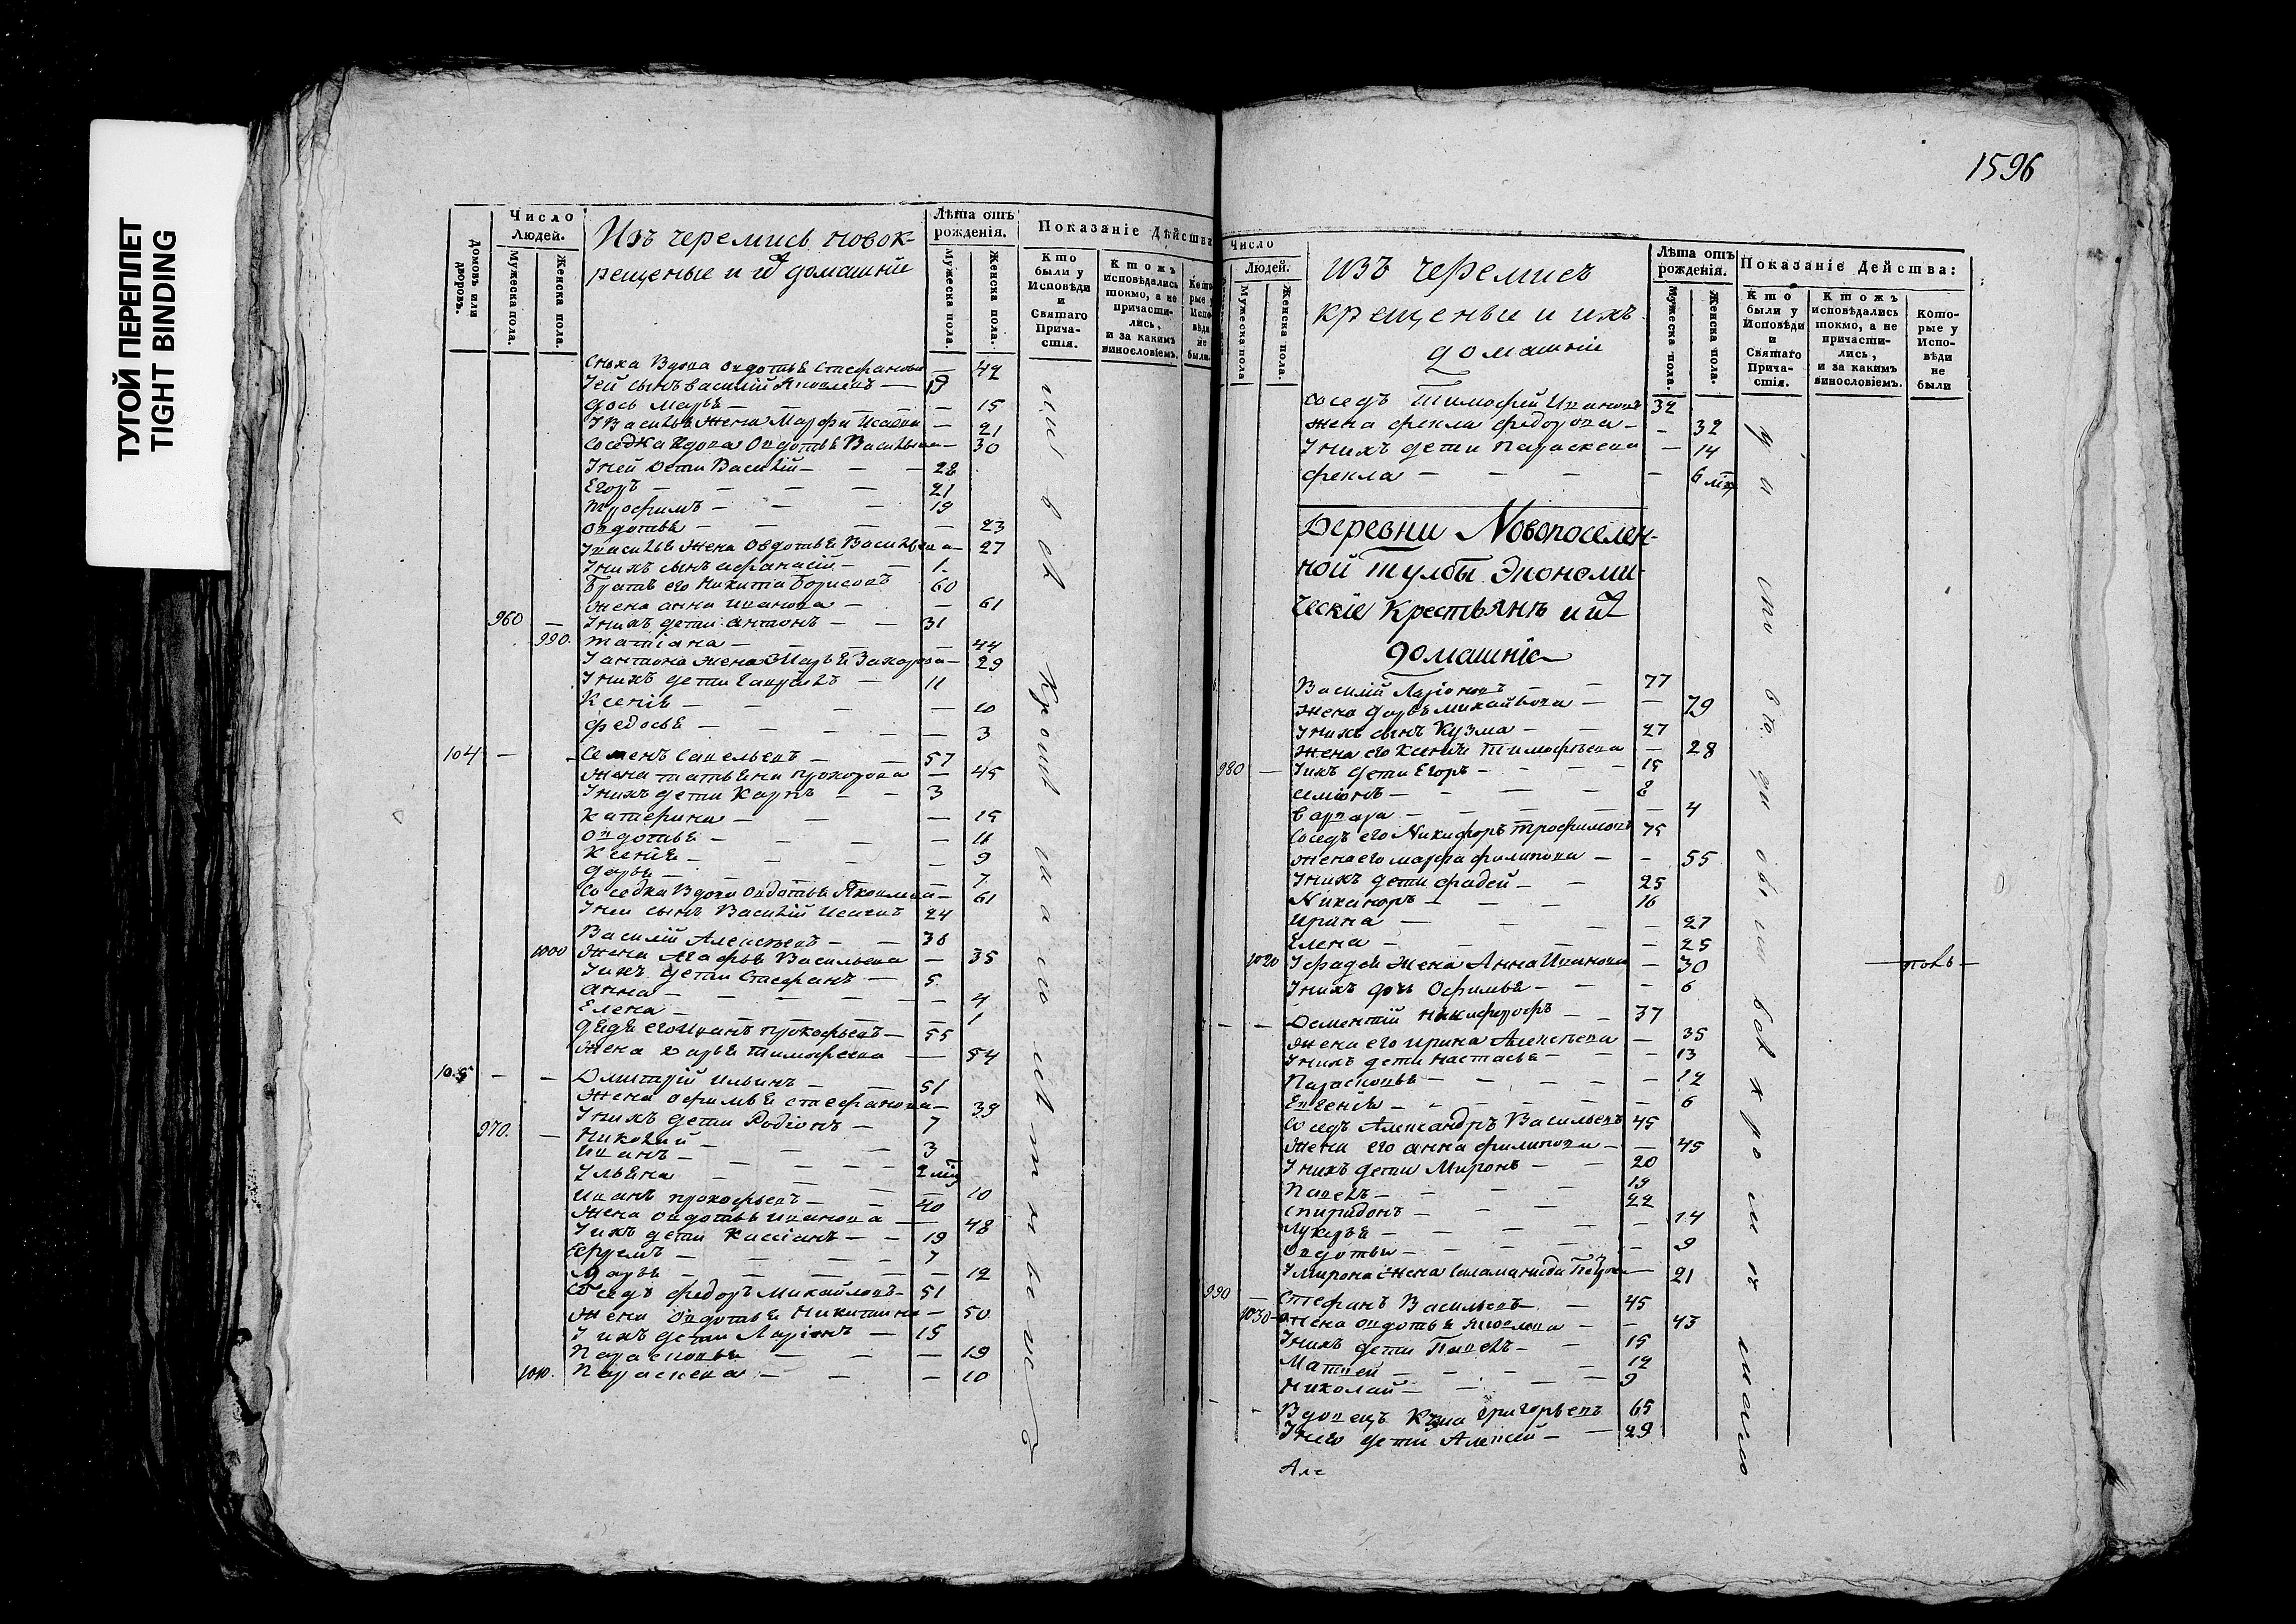 ТУГОЙ ПЕРЕПЛЕТ
TIGHT BINDING
Домовъ или дворовъ.
Число Людей.
Мужеска пола.
Женска пола.
Изъ черемись новок-
рещеные и их домашнїе
Лѣта отъ рожденїя.
Мужеска пола.
Женска пола.
Показанїе Дѣйства
Кто были у Исповѣди и Святаго Прича-стїя.
Ктожъ исповѣдались токмо, а не причасти-лись, и за какимъ винословіемъ.
Кото-рые у Испо-вѣди не были.
Вдова Овдотья Стефанова — 42
Ией сынъ Василїй Яковлевъ — 19
дочь Марья — 15
У Василья жена Марфа Исаева — 21
Соседка вдова Овдотья Васильева — 30
Уней дети Василїй — 28
Егоръ — 21
Трофимъ — 19
Овдотья — 23
У Василья жена Овдотья Васильева — 27
Унихъ сынъ Афанасїй — 1
Братъ его Никита Борисовъ 60
Жена Анна Иванова — 61
960 — Унихъ дети Антонъ — 31
990. Татїана — 44
У Антона жена Марья Захарова — 29
Унихъ дети Гаврилъ — 11
Ксенїя — 10
Федосья — 3
104 — Семенъ Савельевъ — 57
Жена Татьяна Прохорова — 45
Унихъ дети Карпъ — 3
Катерина — 15
Овдотья — 11
Ксенїя — 9
Дарья — 7
Соседка вдова Овдотья Яковлева — 61
Уней сынъ Василїй Исаевъ 24
Василїй Алексеевъ — 36
1000 Жена Агафья Васильева — 35
Унихъ дети Стефанъ — 5
Анна — 4
Елена — 1
Дядя его Иванъ Прокофьевъ — 55
Жена Дарья Тимофеева — 54
105 — Дмитрїй Ильинъ — 51
Жена Офимья Стефанова — 39
Унихъ дети Родїонъ — 7
970. — Николай — 3
Иванъ — 2
Ульяна — 10
Иванъ Прокофьевъ — 40
Жена Овдотья Иванова — 48
Унихъ дети Кассїанъ — 19
Ефремъ — 7
Марья — 12
Соседъ Федоръ Михайловъ — 51
Жена Овдотья Никитина — 50
Унихъ дети Ларїонъ — 15
Парасковья — 19
1010. Параскева — 10
1596
Число Людей.
Мужеска пола
Женска пола.
изъ черемисъ
крещеные и ихъ
домашнїе
Лѣта отъ рожденїя.
Мужеска пола.
Женска пола.
Показанїе Действа:
Кто были у Исповѣди и Святаго Прича-стїя.
Ктожъ исповѣдались токмо, а не причасти-лись, и за какимъ винословіемъ.
Кото-рые у Испо-вѣди не были
Соседъ Тимофей Ивановъ 32
Жена Фекла Федорова — 32
Унихъ дети Параскева — 14
Фекла — 6
Деревни Новопоселен-
ной Тулбы Экономи-
ческїе Крестьянъ и их
домашнїе
Василїй Ларїоновъ — 77
Жена Дарья Михайлова — 79
Унихъ сынъ Кузма — 27
Жена его Ксенїя Тимофеева — 28
980 — Унихъ дети Егоръ — 15
Семїонъ — 8
Варвара — 4
Соседъ его Никифоръ Трофимовъ 75
Жена его Марфа Филипова — 55
Унихъ дети Фадей — 25
Никаноръ — 16
Ирина — 27
Елена — 25
1020 У Фадея жена Анна Иванова — 30
Унихъ дочь Офимья — 6
Дементїй Никифоровъ — 37
Жена его Ирина Алексеева — 35
Унихъ дети Настасья — 13
Парасковья — 12
Евгенїя — 6
Соседъ Александръ Васильевъ 45
Жена его Анна Филипова — 45
Унихъ дети Миронъ — 20
Павелъ — 19
Спиридонъ — 22
Лукерья — 14
Овдотья — 9
У Мирона жена Саламанида Петрова — 21
990 — Стефанъ Васильевъ — 45
1030 Жена Овдотья Яковлева — 43
Унихъ дети Павелъ — 15
Матвей — 12
Николай — 9
Вдовецъ Кузма Григорьевъ 65
Унего дети Алексей — 29
Але